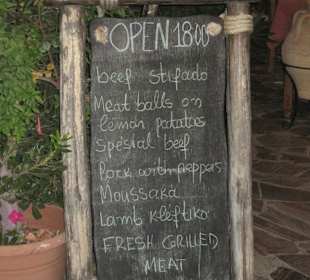 OPEN 1800
beef stifado
Meat balls on
lemon patatas
Spesial beef
Pork with peppers
Moussaka
Lamb Kléftiko
FRESH GRILLED
MEAT